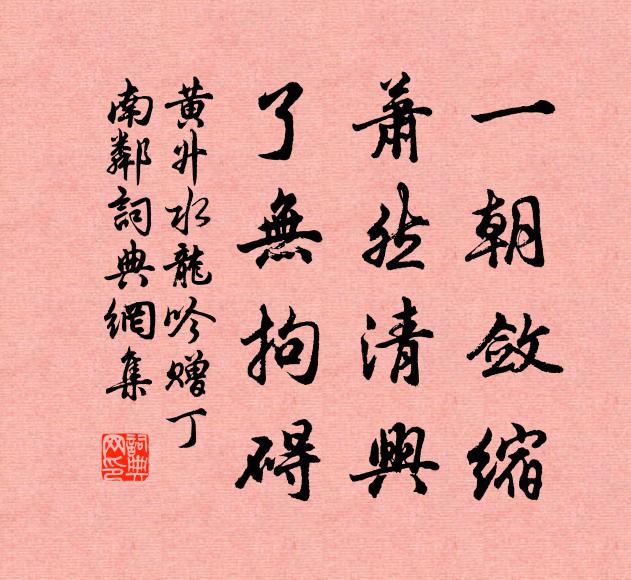 一朝斂縮
蕭然清興
了無拘碍
黄升水龍吟赠丁
南鄰詞典網集
詞典網印